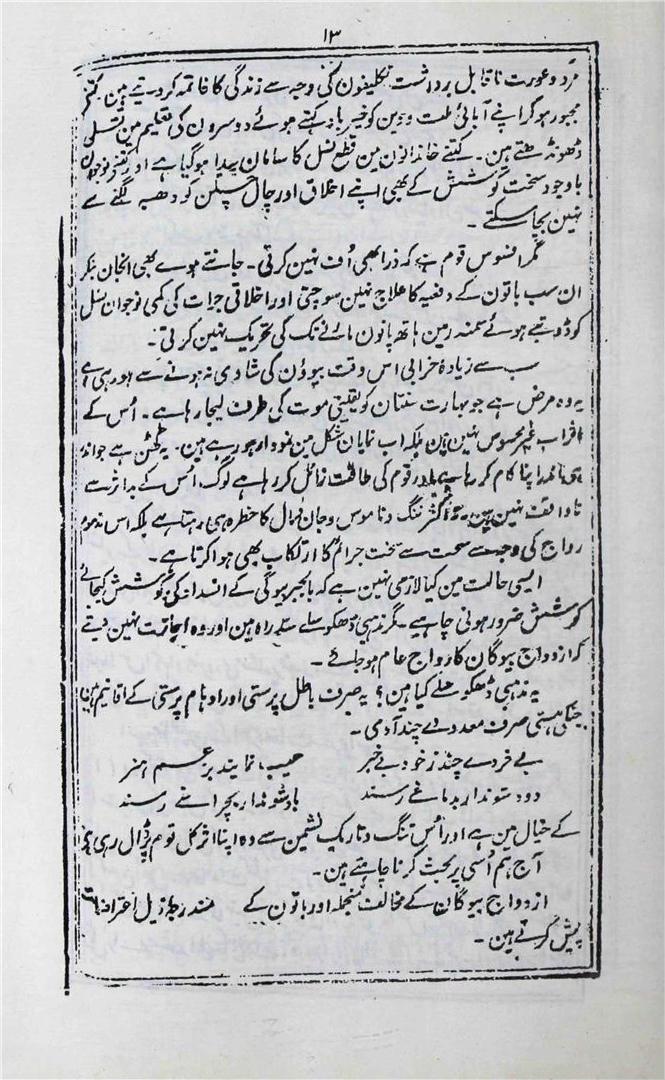 ۱۳
مرد و عورت ناقابل برداشت تکلیفون کی وجہ سے زندگی کا خاتمہ کر دیتے ہین کتنے
مجبور ہو کر اپنے آبائی ملت و دین کو خیرباد کہتے ہوئے دوسرون کی تعلیم مین تسلی
ڈھونڈھتے ہین۔ کتنے خاندانون مین قطع نسل کا سامان پیدا ہو گیا ہے اور کتنے نوجوان
باوجود سخت کوشش کے بھی اپنے اخلاق اور چال چلن کو دھبہ لگنے سے
نہین بچا سکتے۔
مگر افسوس قوم ہے کہ ذرا بھی اُف نہین کرتی۔ جانتے ہوے بھی انجان بنکر
ان سب باتون کے دفعیہ کا علاج نہین سوچتی اور اخلاقی جرات کی کمی نوجوان نسل
کو ڈوبتے ہوئے سمندر مین ہاتھ پانون مارنے تک کی تحریک نہین کرتی۔
سب سے زیادہ خرابی اس وقت بیوؤن کی شادی نہ ہونے سے ہو رہی ہے
یہ وہ مرض ہے جو بھارت سنتان کو یقینی موت کی طرف لیجا رہا ہے۔ اُس کے
اثرات غیر محسوس نہین ہین بلکہ اب نمایان شکل مین نمودار ہو رہے ہین۔ یہ گھن ہے جو اندر
ہی اندر اپنا کام کر رہا ہے اور قوم کی طاقت زائل کر رہا ہے لوگ اُس کے بد اثر سے
ناواقف نہین ہین۔ اکثر ننگ و ناموس و جان و مال کا خطرہ ہی رہتا ہے بلکہ اس مذموم
رواج کی وجہ سے سخت سے سخت جرائم کا ارتکاب بھی ہوا کرتا ہے۔
ایسی حالت مین کیا لازمی نہین ہے کہ بالجبر بیوگی کے انسداد کی کوشش کیجائے
کوشش ضرور ہونی چاہیے۔ مگر مذہبی ڈھکوسلے سد راہ ہین اور وہ اجازت نہین دیتے
کہ ازدواج بیوگان کا رواج عام ہو جائے۔
یہ مذہبی ڈھکوسلے کیا ہین؟ یہ صرف باطل پرستی اور اوہام پرستی کے اقانیم ہین
جنکی ہستی صرف معدودے چند آدمی۔
بے خردے چند ز خود بے خبر عیب نمایند برعسم ہنر
دود شوند ار بدماغے رسند باد شوند ار بچراغے رسند
کے خیال مین ہے اور اُس تنگ و تاریک نشیمن سے وہ اپنا اثر کل قوم پر ڈال رہی ہے
آج ہم اُسی پر بحث کرنا چاہتے ہین۔
ازدواج بیوگان کے مخالف منجملہ اور باتون کے مندرجہ ذیل اعتراضات
پیش کرتے ہین۔